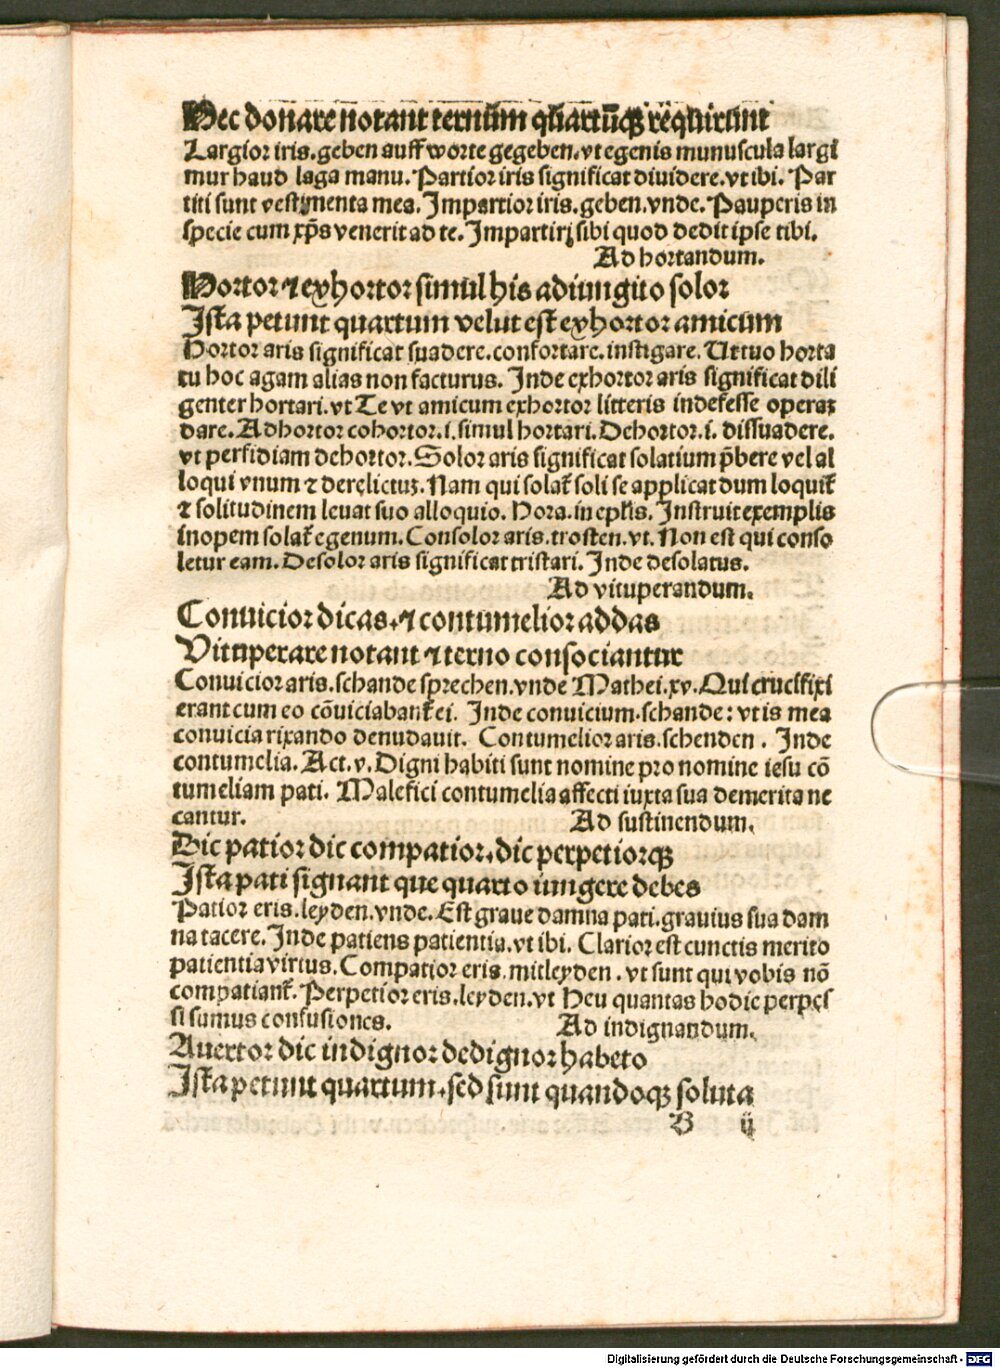 Hec donare notant ternum quartūqꝫ requirunt
Largior iris.geben auff worte gegeben.vt egenis munuscula largi
mur haud laga manu. Partior iris significat diuidere.vt ibi. Par
titi sunt vestimenta mea. Impartior iris.geben.vnde. Pauperis in
specie cum xp̄s venerit ad te. Impartirj sibi quod dedit ipse tibi.
Ad hortandum.
Hortor ⁊ exhortor simul his adiungito solor
Ista petunt quartum velut est exhortor amicum
Hortor aris significat suadere.confortare.instigare. Vt tuo horta
tu hoc agam alias non facturus. Inde exhortor aris significat dili
genter hortari.vt Te vt amicum exhortor litteris indefesse operaꝫ
dare. Adhortor cohortor.i.simul hortari. Dehortor.i. dissuadere.
vt perfidiam dehortor. Solor aris significat solatium p̄bere vel al
loqui vnum ⁊ derelictuꝫ. Nam qui solat̄ soli se applicat dum loquit̄
⁊ solitudinem leuat suo alloquio. Hora.in ep̄lis. Instruit exemplis
inopem solat̄ egenum. Consolor aris.trosten.vt. Non est qui conso
letur eam. Desolor aris significat tristari. Inde desolatus.
Ad vituperandum.
Conuicior dicas.⁊ contumelior addas
Vituperare notant ⁊ terno consociantur
Conuicior aris.schande sprechen.vnde Mathei.xv. Qui crucifixi
erant cum eo cōuiciabant̄ ei. Inde conuicium.schande: vt is mea
conuicia rixando denudauit. Contumelior aris.schenden. Inde
contumelia. Act.v. Digni habiti sunt nomine pro nomine iesu cō
tumeliam pati. Malefici contumelia affecti iuxta sua demerita ne
cantur. Ad sustinendum.
Dic patior dic compatior.dic perpetiorqꝫ
Ista pati signant que quarto iungere debes
Patior eris.leyden.vnde. Est graue damna pati.grauius sua dam
na tacere. Inde patiens patientia.vt ibi. Clarior est cunctis merito
patientia virtus. Compatior eris mitleyden. vt sunt qui vobis nō
compatiant̄. Perpetior eris.leyden.vt Heu quantas hodie perpes
si sumus confusiones. Ad indignandum.
Auertor dic indignor dedignor habeto
Ista petunt quartum.sed sunt quandoqꝫ soluta
B ij
Digitalisierung gefördert durch die Deutsche Forschungsgemeinschaft - DFG